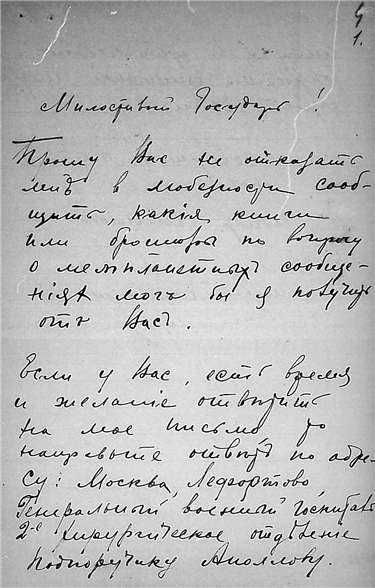 4
1.
Милостивый Государь!
Прошу Вас не отказать
мнѣ в любезности сооб-
щить, какія книги
или брошюры по вопросу
о межпланетныхъ сообще-
ніях могъ бы я получить
отъ Васъ.
Если у Вас, есть время
и желаніе отвѣтить
на мое письмо то
направьте отвѣтъ по адре-
су: Москва, Лефортово
Генеральный военный госпиталь
2-е хирургическое отдѣленіе
подпоручику Аполлону.